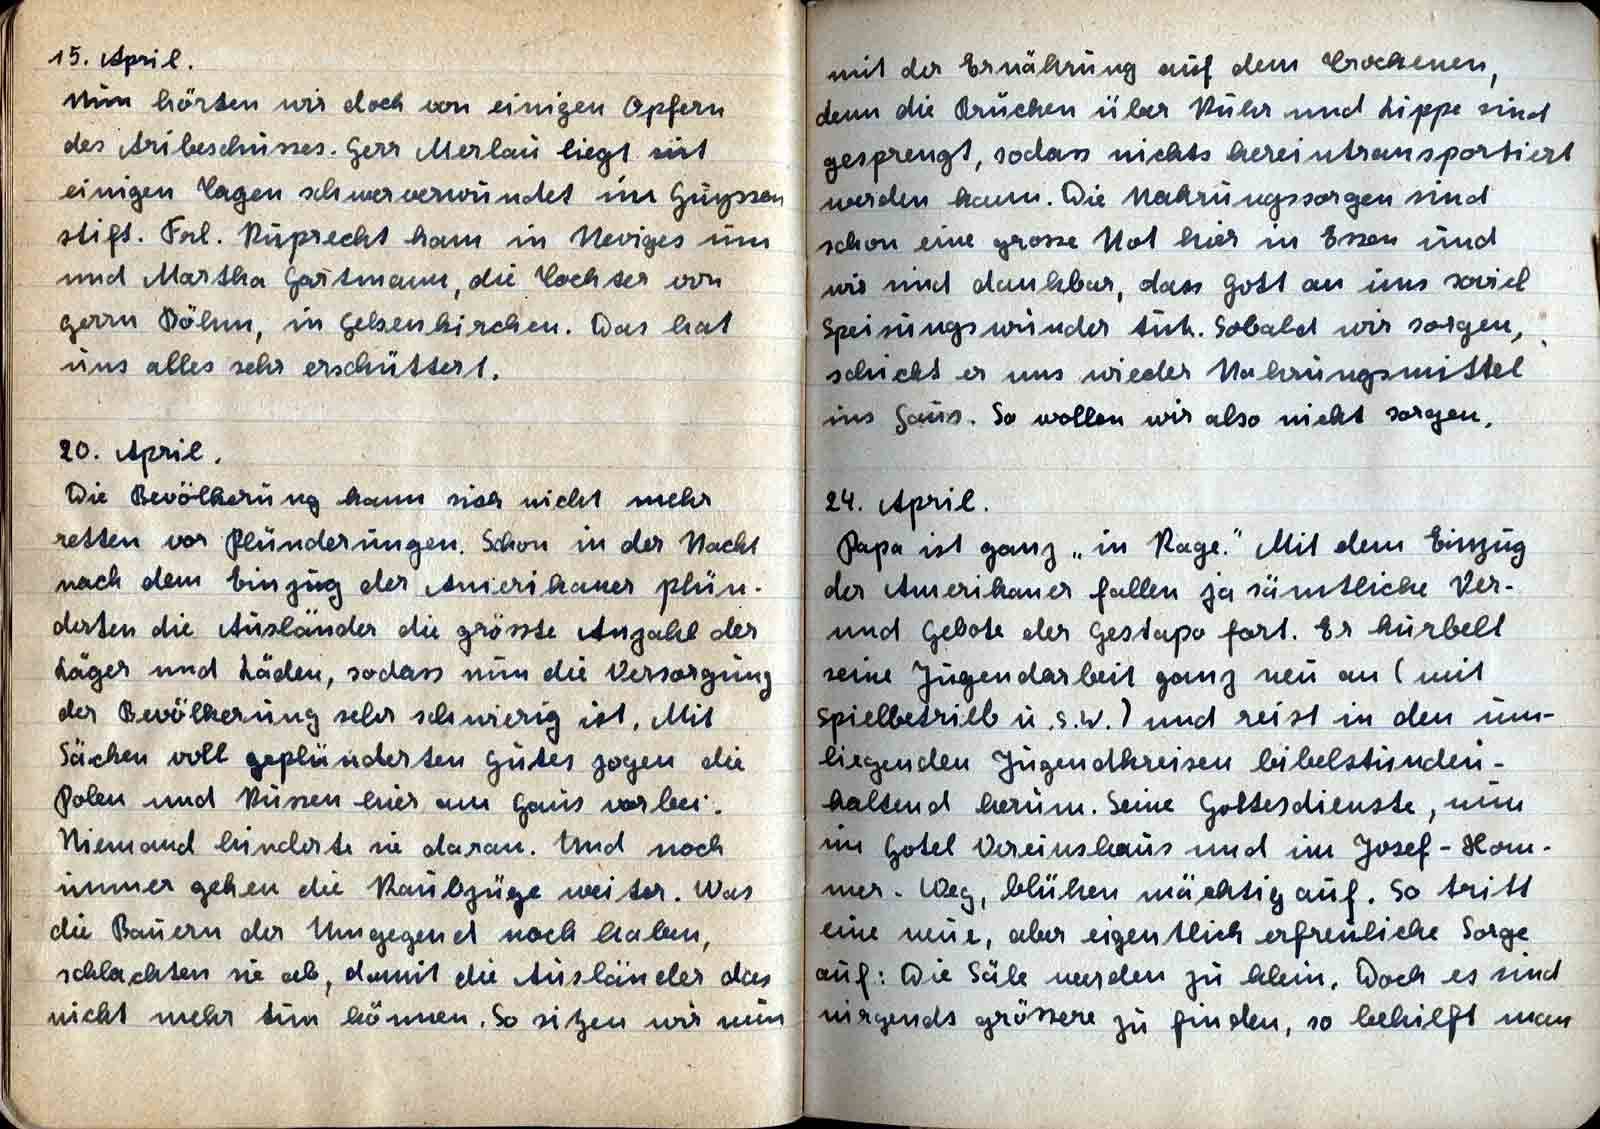 15. April.
Nun hörten wir doch von einigen Opfern
des Aribeschusses. Herr Merlau liegt seit
einigen Tagen schwerverwundet im Huyssen
stift. Frl. Ruprecht kam in Neviges um
und Martha Hartmann, die Tochter von
Herrn Böhm, in Gelsenkirchen. Das hat
uns alles sehr erschüttert.
20. April.
Die Bevölkerung kann sich nicht mehr
retten vor Plünderungen. Schon in der Nacht
nach dem Einzug der Amerikaner plün-
derten die Ausländer die grösste Anzahl der
Läger und Läden, sodass nun die Versorgung
der Bevölkerung sehr schwierig ist. Mit
Säcken voll geplünderten Gutes zogen die
Polen und Russen hier am Haus vorbei.
Niemand hinderte sie daran. Und noch
immer gehen die Raubzüge weiter. Was
die Bauern der Umgegend noch haben,
schlachten sie ab, damit die Ausländer das
nicht mehr tun können. So sitzen wir nun
mit der Ernährung auf dem Trockenen,
denn die Brücken über Ruhr und Lippe sind
gesprengt, sodass nichts hereintransportiert
werden kann. Die Nahrungssorgen sind
schon eine grosse Not hier in Essen und
wir sind dankbar, dass Gott an uns soviel
Speisungswunder tut. Sobald wir sorgen,
schickt er uns wieder Nahrungsmittel
ins Haus. So wollen wir also nicht sorgen.
24. April.
Papa ist ganz „in Rage." Mit dem Einzug
der Amerikaner fallen ja sämtliche Ver-
und Gebote der Gestapo fort. Er kurbelt
seine Jugendarbeit ganz neu an (mit
Spielbetrieb u.s.w.) und reist in den um-
liegenden Jugendkreisen bibelstunden-
haltend herum. Seine Gottesdienste, nun
im Hotel Vereinshaus und im Josef-Hom-
mer-Weg, blühen mächtig auf. So tritt
eine neue, aber eigentlich erfreuliche Sorge
auf: Die Säle werden zu klein. Doch es sind
nirgends grössere zu finden, so behilft man